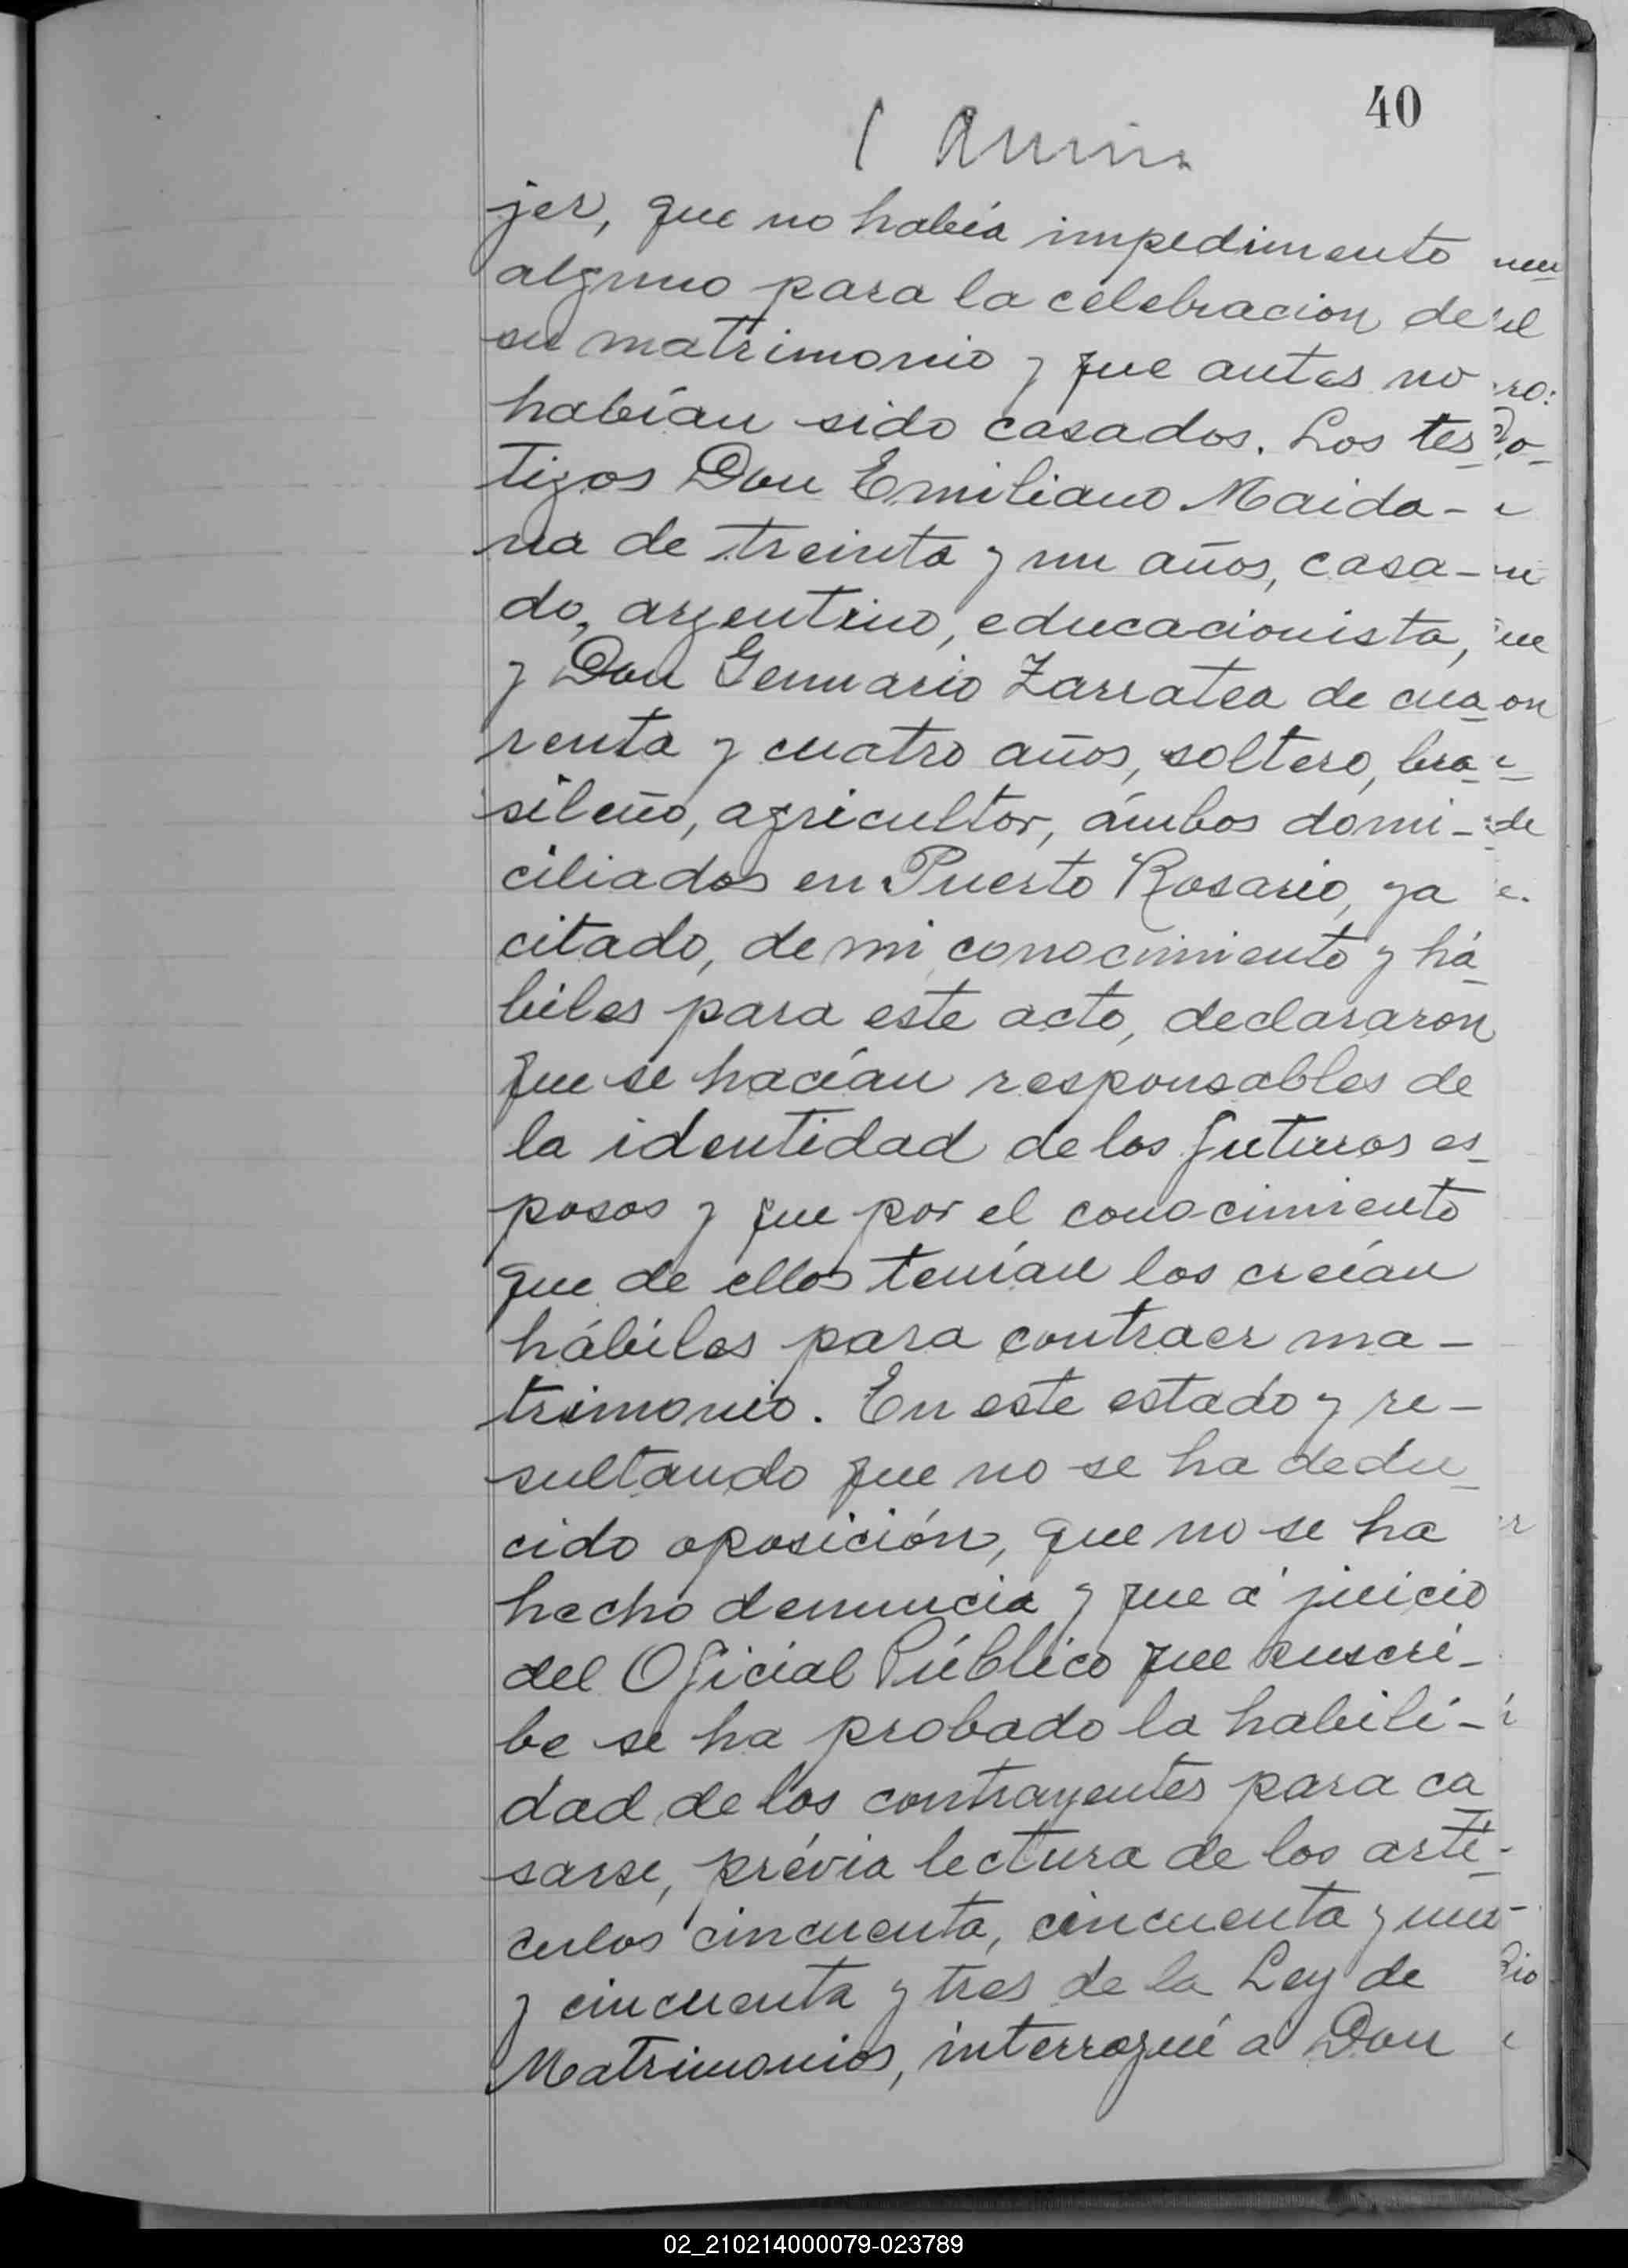 40
jer, que no había impedimento
alguno para la celebracion de
su matrimonio y que antes no
habían sido casados. Los tes
tigos Don Emiliano Maida-
na de treinta y un años, casa-
do, argentino, educacionista,
y Don Genuario Zarratea de cua
renta y cuatro años, soltero, bra
sileño, agricultor, ámbos domi-
ciliados en Puerto Rosario, ya
citado, de mi conocimiento y há
biles para este acto, declararon
que se hacían responsables de
la identidad de los futuros es
posos y que por el conocimiento
que de ellos tenían los creían
hábiles para contraer ma-
trimonio. En este estado y re-
sultando que no se ha dedu
cido oposición, que no se ha
hecho denuncia y que á juicio
del Oficial Público que suscri-
be se ha probado la habili-
dad de los contrayentes para ca
sarse, prévia lectura de los artí
culos cincuenta, cincuenta y uno
y cincuenta y tres de la Ley de
Matrimonios, interrogué á Don
02_210214000079-023789